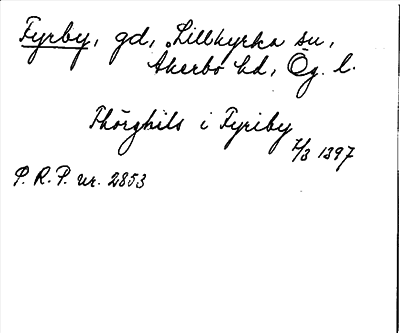 Fyrby, gd, Lillkyrka sn,
Åkerbo hd, Ög. l.
Thörghils i Fyriby
7/3 1397
P. R. P. nr. 2853